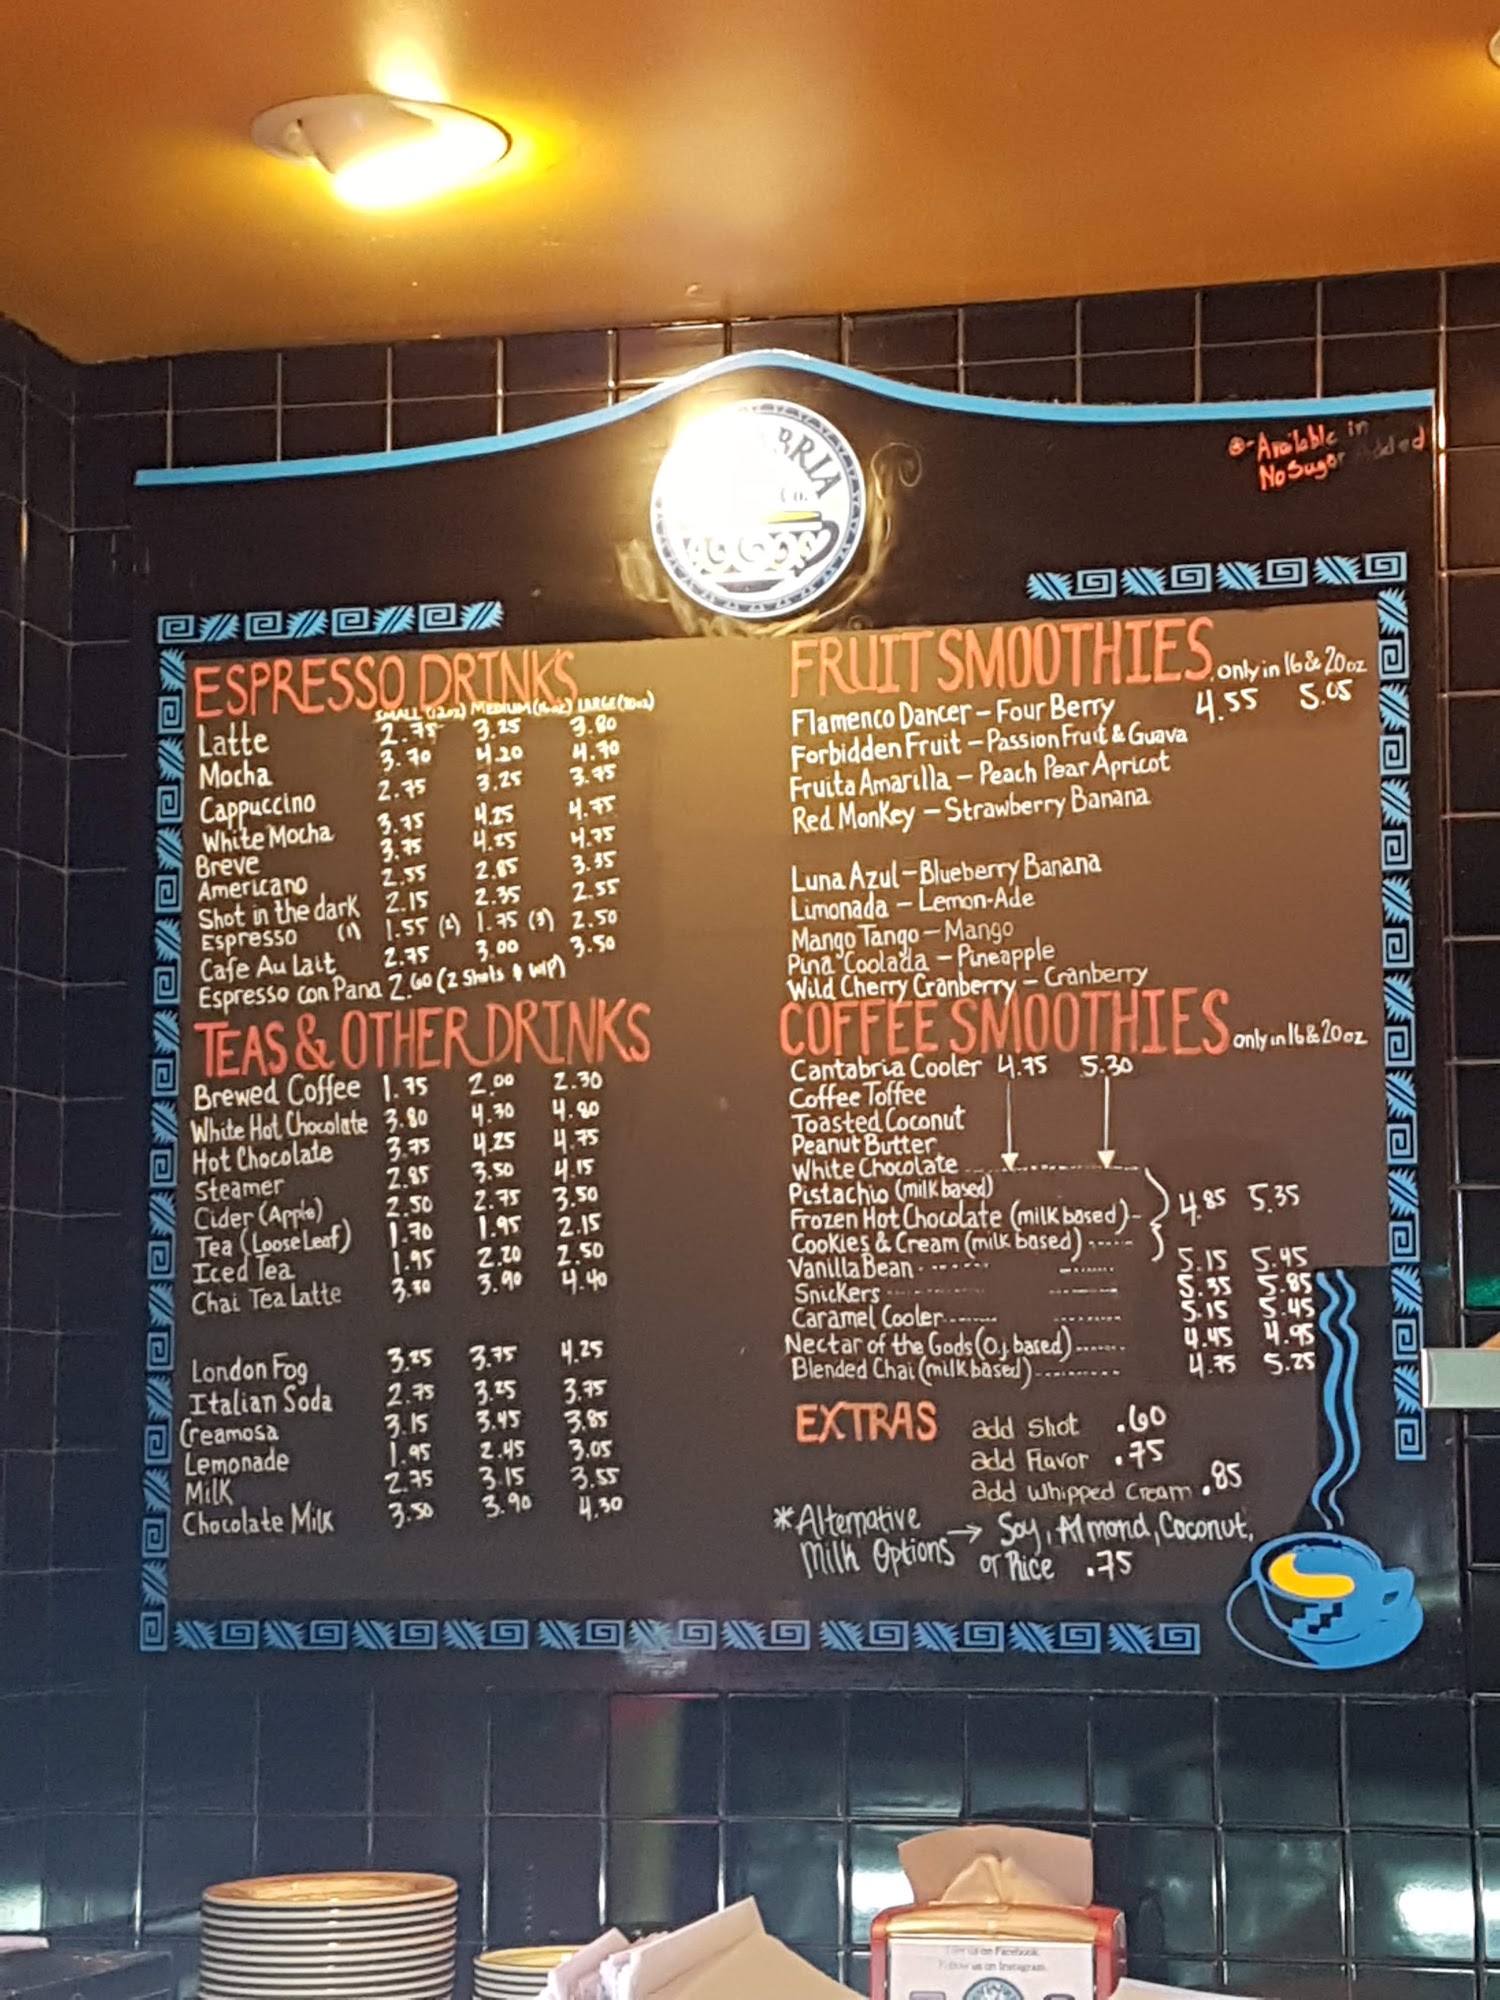 BRIA
Co.
⊛-Available in
No Sugar Added
ESPRESSO DRINKS
SMALL (12oz) MEDIUM (16oz) LARGE (20oz)
Latte 2.75 3.25 3.80
Mocha 3.70 4.20 4.70
Cappuccino 2.75 3.25 3.75
White Mocha 3.75 4.25 4.75
Breve 3.75 4.25 4.75
Americano 2.55 2.85 3.35
Shot in the dark 2.15 2.35 2.55
Espresso (1) 1.55 (2) 1.75 (3) 2.50
Cafe Au Lait 2.75 3.00 3.50
Espresso con Pana 2.60 (2 Shots & WIP)
TEAS & OTHER DRINKS
Brewed Coffee 1.75 2.00 2.30
White Hot Chocolate 3.80 4.30 4.80
Hot Chocolate 3.75 4.25 4.75
Steamer 2.85 3.50 4.15
Cider (Apple) 2.50 2.75 3.50
Tea (Loose Leaf) 1.70 1.95 2.15
Iced Tea 1.95 2.20 2.50
Chai Tea Latte 3.90 4.40
London Fog 3.25 3.75 4.25
Italian Soda 2.75 3.25 3.75
Creamosa 3.15 3.45 3.85
Lemonade 1.95 2.45 3.05
Milk 2.75 3.15 3.55
Chocolate Milk 3.50 3.90 4.30
FRUIT SMOOTHIES only in 16 & 20oz
Flamenco Dancer – Four Berry 4.55 5.05
Forbidden Fruit – Passion Fruit & Guava
Fruita Amarilla – Peach Pear Apricot
Red Monkey – Strawberry Banana
Luna Azul – Blueberry Banana
Limonada – Lemon-Ade
Mango Tango – Mango
Pina Coolada – Pineapple
Wild Cherry Cranberry – Cranberry
COFFEE SMOOTHIES only in 16 & 20oz
Cantabria Cooler 4.75 5.30
Coffee Toffee
Toasted Coconut
Peanut Butter
White Chocolate
Pistachio (milk based)
Frozen Hot Chocolate (milk based) 4.85 5.35
Cookies & Cream (milk based)
Vanilla Bean 5.15 5.45
Snickers 5.35 5.85
Caramel Cooler 5.15 5.45
Nectar of the Gods (O.j. based) 4.45 4.95
Blended Chai (milk based) 4.75 5.25
EXTRAS add Shot .60
add Flavor .75
add whipped cream .85
*Alternative → Soy, Almond, Coconut,
Milk Options or Rice .75
Like us on Facebook
Follow us on Instagram